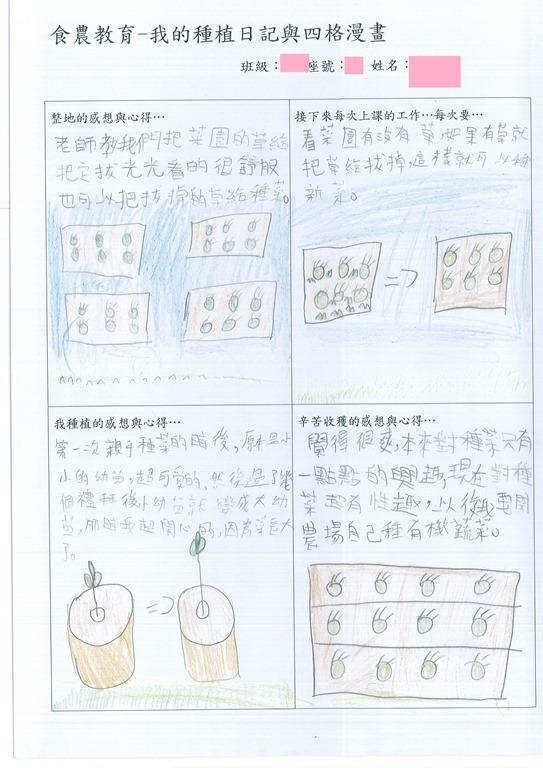 食農教育-我的種植日記與四格漫畫
班級： 座號： 姓名：
整地的感想與心得…
老師教我們把菜園的草給
把它拔光光看的很舒服
也可以把拔掉的草給種菜。
接下來每次上課的工作…每次要…
看菜園有沒有草如果有草就
把草給拔掉，這樣就可以種
新菜。
我種植的感想與心得…
第一次親手種菜的時後，原本是小
小的幼苗，超可愛的，然後過了幾
個禮拜後小幼苗就變成大幼
苗，那時我超開心的，因為菜長大
了。
辛苦收穫的感想與心得…
覺得很爽，本來對種菜只有
一點點的興趣，現在對種
菜超有性趣，以後我要開
農場自己種有機蔬菜。